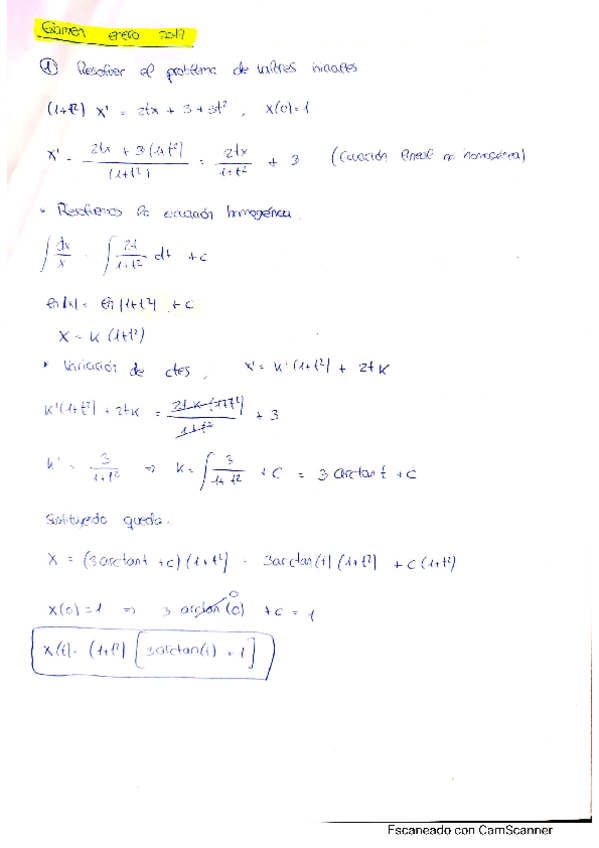 Examen enero 2017
① Resolver el problema de valores iniciales
(1+t²) x' = 2tx + 3 + 3t² , x(0)=1
x' = (2tx + 3(1+t²))/(1+t²) = 2tx/(1+t²) + 3 (Ecuación lineal no homogénea)
• Resolvemos la ecuación homogénea
∫ dx/x = ∫ 2t/(1+t²) dt + c
ln|x| = ln|1+t²| + c
x = k (1+t²)
• Variación de ctes, x' = k'(1+t²) + 2tk
k'(1+t²) + 2tk = 2tk(1+t²)/(1+t²) + 3
k' = 3/(1+t²) ⇒ k = ∫ 3/(1+t²) + C = 3 arctan t + C
Sustituyendo queda.
x = (3arctan t + c)(1+t²) = 3arctan(t)(1+t²) + c(1+t²)
x(0)=1 ⇒ 3 arctan(0) 0 + c = 1
x(t) = (1+t²) [3arctan(t) + 1]
Escaneado con CamScanner